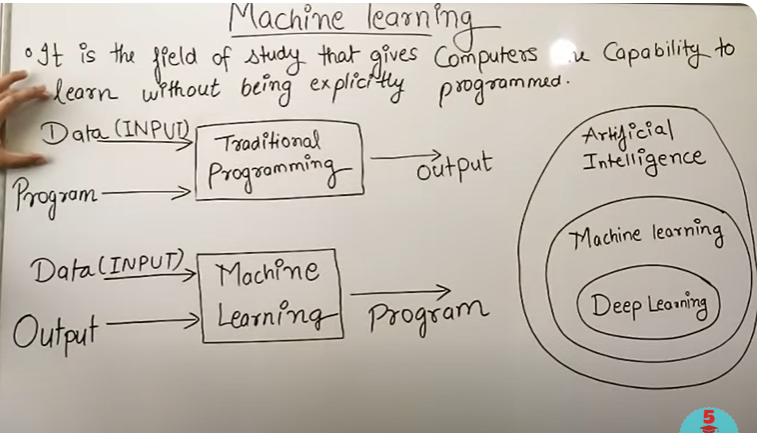 Machine learning
It is the field of study that gives Computers Capability to
learn without being explicitly programmed.
Data (INPUT)
Program
Traditional
Programming
output
Data (INPUT)
Output
Machine
Learning
Program
Artificial
Intelligence
Machine learning
Deep Learning
5